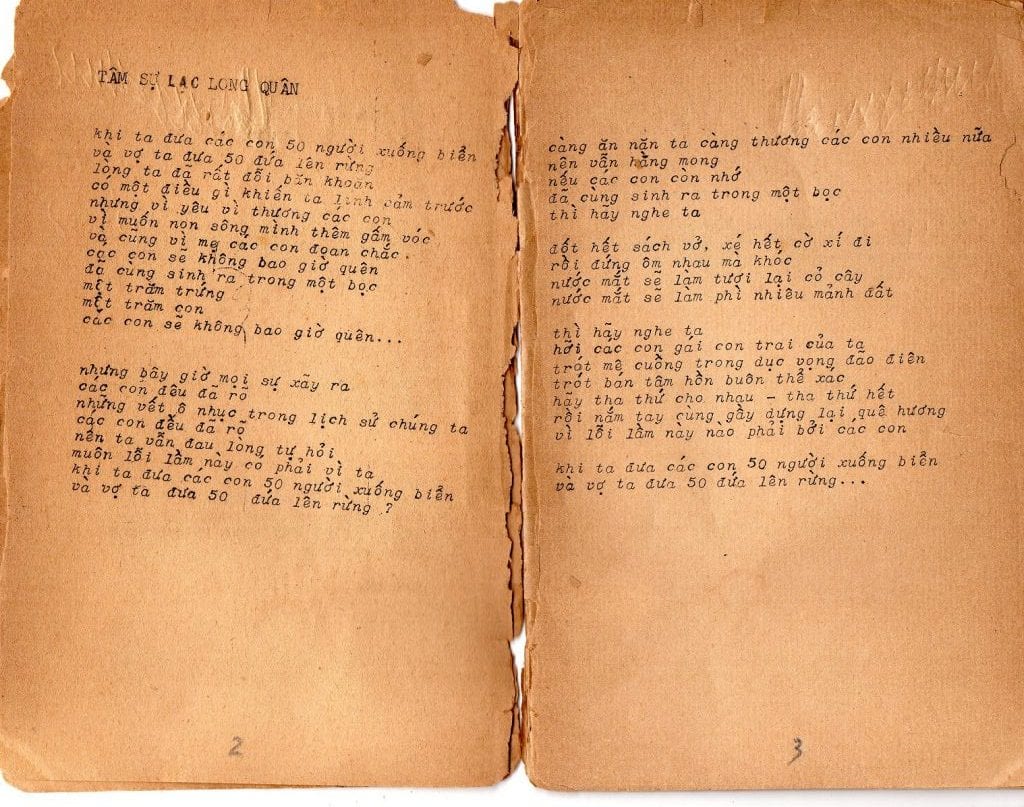 TÂM SỰ LẠC LONG QUÂN
khi ta đưa các con 50 người xuống biển
và vợ ta đưa 50 đứa lên rừng
lòng ta đã rất đỗi băn khoăn
có một điều gì khiến ta linh cảm trước
nhưng vì yêu vì thương các con
vì muốn non sông mình thêm gấm vóc
và cũng vì mẹ các con đoan chắc.
các con sẽ không bao giờ quên
đã cùng sinh ra trong một bọc
một trăm trứng
một trăm con
các con sẽ không bao giờ quên...
nhưng bây giờ mọi sự xãy ra
các con đều đã rõ
những vết ô nhục trong lịch sử chúng ta
các con đều đã rõ
nên ta vẫn đau lòng tự hỏi
muôn lỗi lầm này có phải vì ta
khi ta đưa các con 50 người xuống biển
và vợ ta đưa 50 đứa lên rừng ?
2
càng ăn năn ta càng thương các con nhiều nữa
nên vẫn hằng mong
nếu các con còn nhớ
đã cùng sinh ra trong một bọc
thì hãy nghe ta
đốt hết sách vở, xé hết cờ xí đi
rồi đứng ôm nhau mà khóc
nước mắt sẽ làm tươi lại cỏ cây
nước mắt sẽ làm phì nhiêu mảnh đất
thì hãy nghe ta
hỡi các con gái con trai của ta
trót mê cuồng trong dục vọng đảo điên
trót bán tâm hồn buôn thể xác
hãy tha thứ cho nhau - tha thứ hết
rồi nắm tay cùng gầy dựng lại quê hương
vì lỗi lầm này nào phải bởi các con
khi ta đưa các con 50 người xuống biển
và vợ ta đưa 50 đứa lên rừng...
3